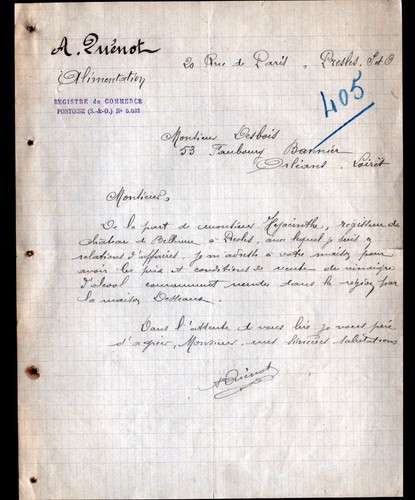 A. Quénot
Alimentation
20 Rue de Paris, Presles. S.&O
REGISTRE du COMMERCE
PONTOISE (S.-&-O.) N°
405
Monsieur Desbois
53 Faubourg Bannier
Orléans. Loiret
Monsieur,
De la part de monsieur Hyacinthe, régisseur du
château de Bellevue à Presles, avec lequel je suis en
relations d'affaires, je m'adresse à votre maison pour
avoir les prix et conditions de vente du vinaigre
d'alcool couramment vendu dans la région par
la maison Desseaux.
Dans l'attente de vous lire je vous prie
d'agréer, Monsieur, mes sincères salutations
A Quénot